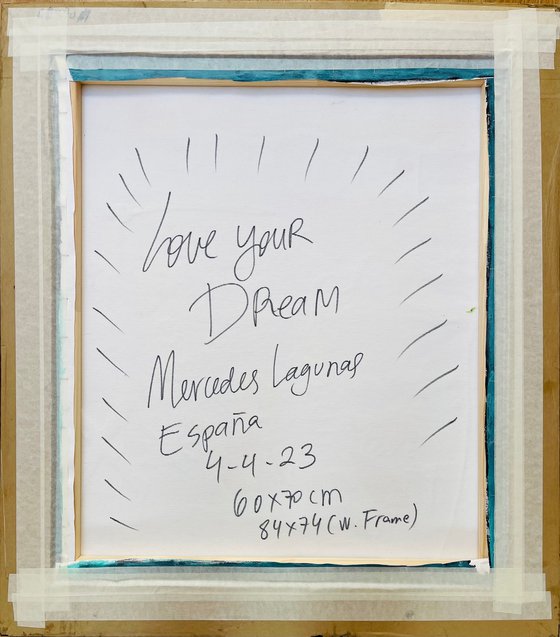 Love your
Dream
Mercedes Lagunas
España
4-4-23
60x70cm
84x74 (w. Frame)